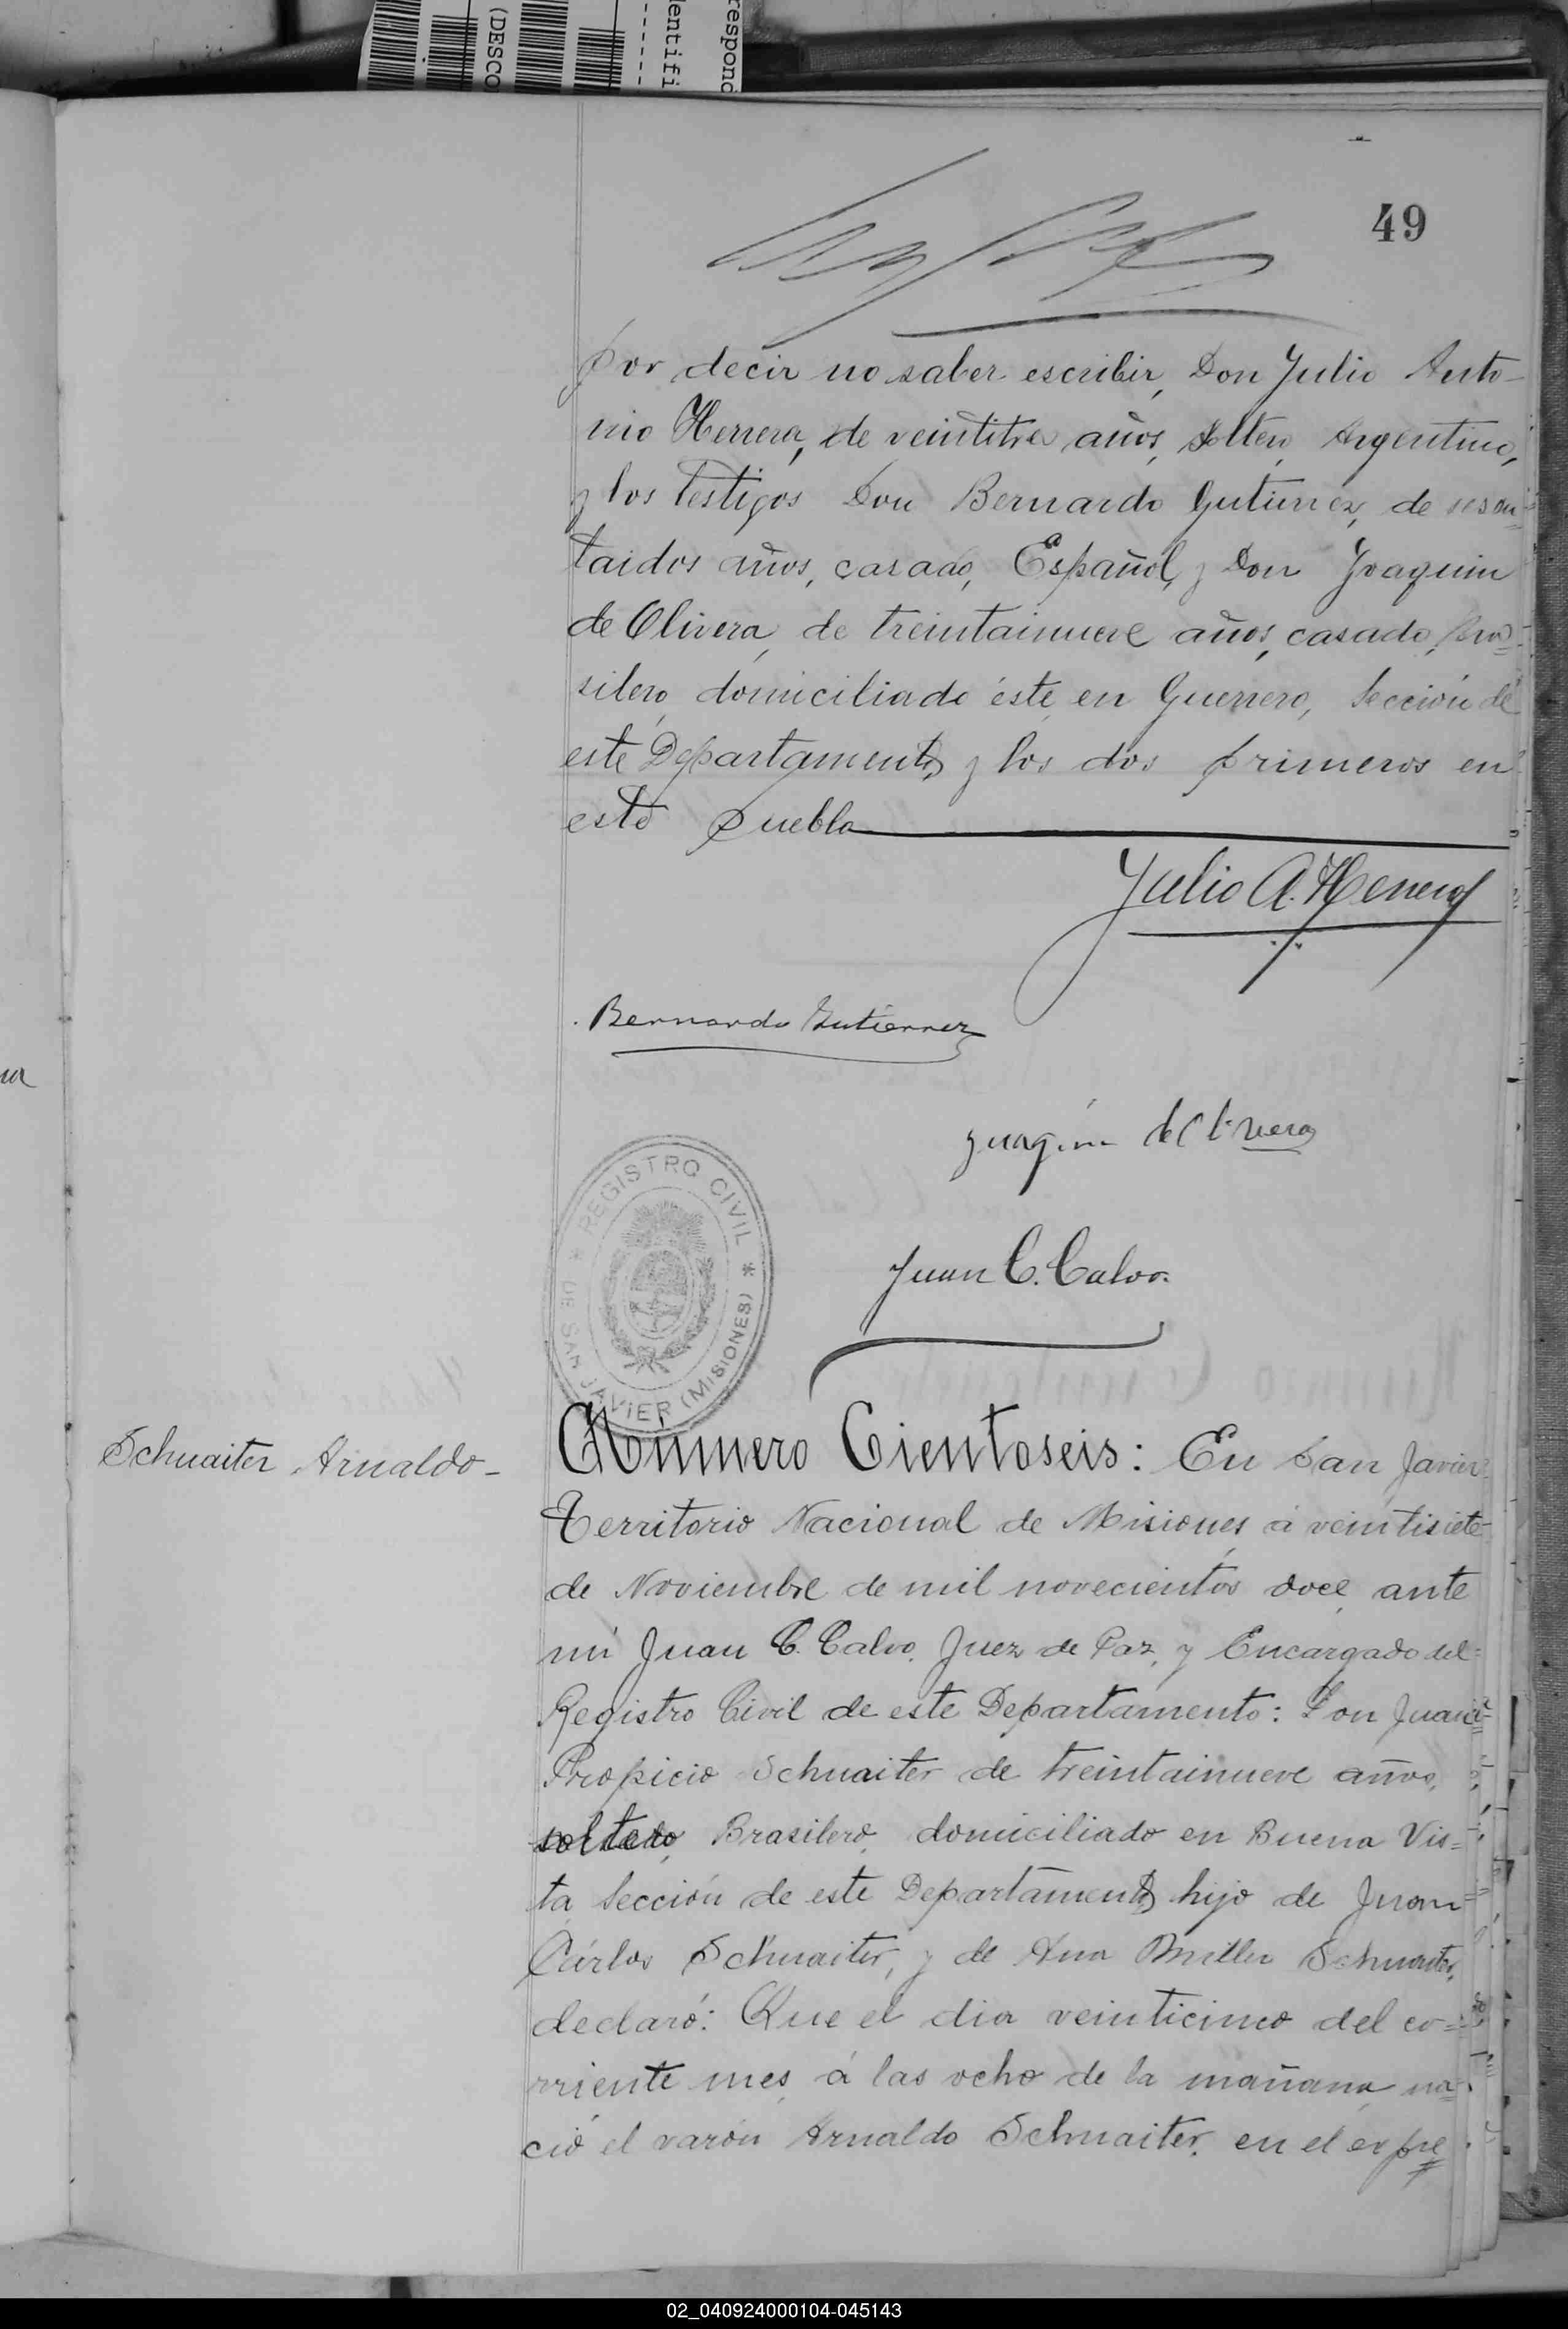 (DESCO
entifi
respond
49
por decir no saber escribir, Don Julio Anto-
nio Herrera, de veintitres años, soltero, Argentino,
y los testigos Don Bernardo Gutierrez, de sesen=
taidos años, casado, Español, y Don Joaquin
de Olivera, de treintainueve años, casado, Bra=
silero, domiciliado éste en Guerrero, Sección de
este Departamento, y los dos primeros en
este pueblo
Julio A. Herrera
Bernardo Gutierrez
Juan C. Calvo.
* REGISTRO CIVIL *
DE SAN JAVIER (MISIONES)
Schuaiter Arnaldo-
Número Cientoseis: En San Javier
Territorio Nacional de Misiones, á veintisiete
de Noviembre de mil novecientos doce, ante
mi Juan C. Calvo, Juez de Paz, y Encargado del
Registro Civil de este Departamento: Don Juan
Propicio Schuaiter de treintainueve años,
soltero, Brasilero, domiciliado en Buena Vis=
ta Sección de este Departamento, hijo de Juan
Cárlos Schuaiter, y de Ana Miller Schuaiter,
declaró: Que el dia veinticinco del co=
rriente mes, á las ocho de la mañana, na=
ció el varón Arnaldo Schuaiter, en el expre
02_040924000104-045143